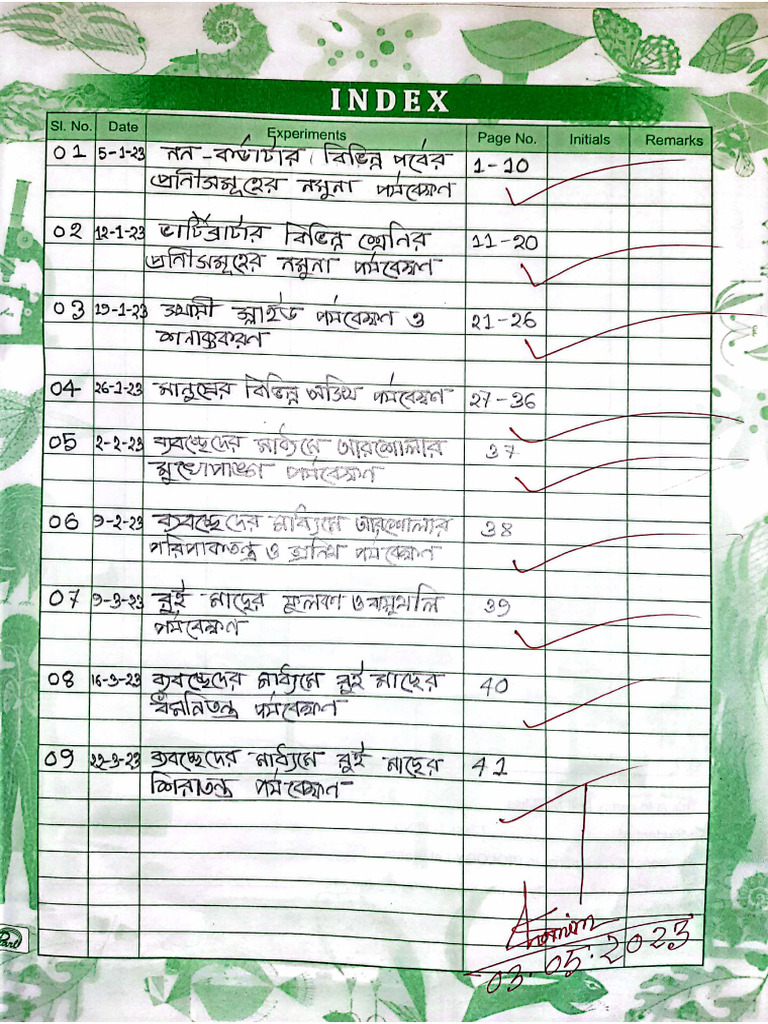 INDEX
Sl. No. Date Experiments Page No. Initials Remarks
01 5-1-23 নন-কর্ডাটার বিভিন্ন পর্বের 1-10
প্রাণীসমূহের নমুনা পর্যবেক্ষণ
02 12-1-23 ভার্টিব্রাটার বিভিন্ন শ্রেনির 11-20
প্রাণীসমূহের নমুনা পর্যবেক্ষণ
03 19-1-23 স্থায়ী স্লাইড পর্যবেক্ষণ ও 21-26
শনাক্তকরণ
04 26-1-23 মানুষের বিভিন্ন অস্থি পর্যবেক্ষণ 27-36
05 2-2-23 ব্যবচ্ছেদের মাধ্যমে আরশোলার 37
মুখোপাঙ্গ পর্যবেক্ষণ
06 9-2-23 ব্যবচ্ছেদের মাধ্যমে আরশোলার 38
পরিপাকতন্ত্র ও গ্রন্থি পর্যবেক্ষণ
07 9-3-23 রুই মাছের ফুলকা ও বায়ুথলি 39
পর্যবেক্ষণ
08 16-3-23 ব্যবচ্ছেদের মাধ্যমে রুই মাছের 40
ধমনিতন্ত্র পর্যবেক্ষণ
09 22-3-23 ব্যবচ্ছেদের মাধ্যমে রুই মাছের 41
শিরাতন্ত্র পর্যবেক্ষণ
03.05.2023